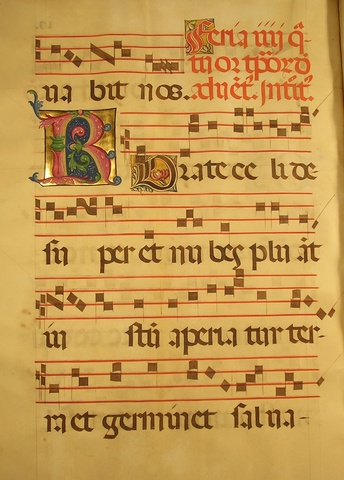 Feria iiij q̃-
tuor tp̃orũ
na bit nos. aduẽt. Intit̃.
R Orate ce li de
su per et nu bes plu at
iu stũ aperia tur ter-
ra et germinet salua-